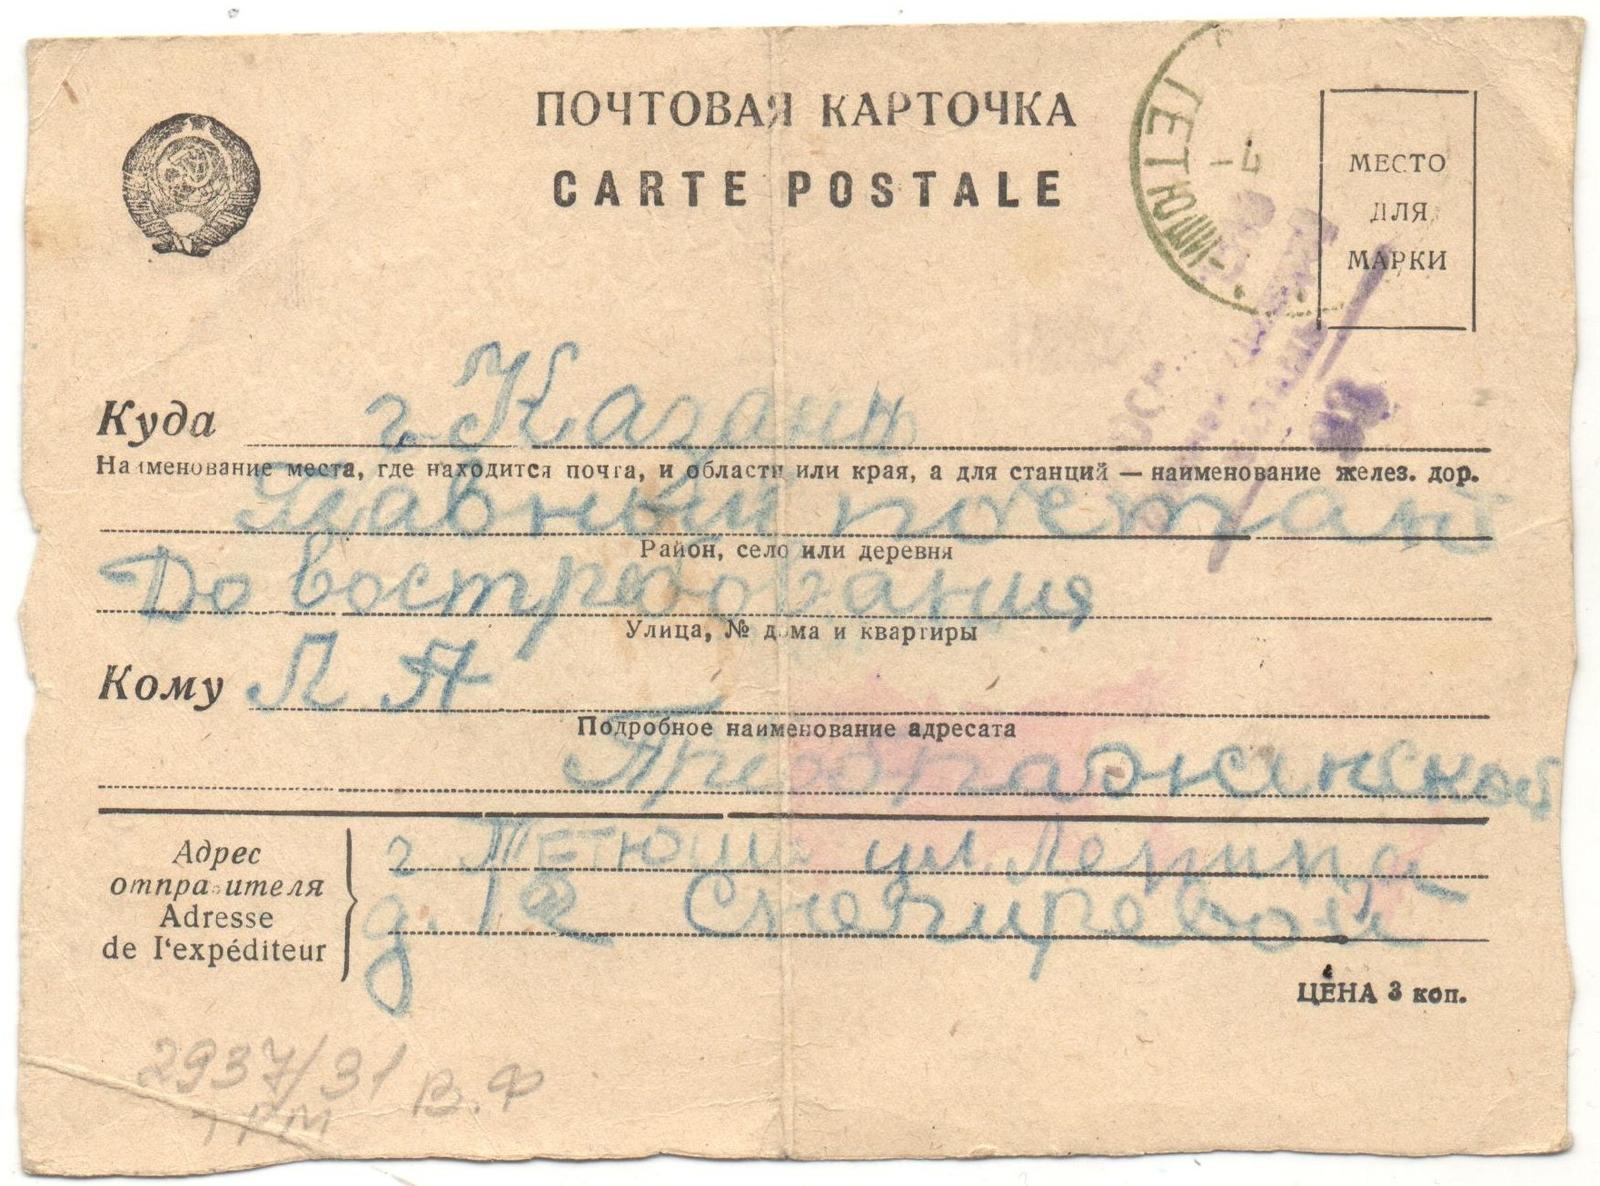 ПОЧТОВАЯ КАРТОЧКА
CARTE POSTALE
МЕСТО
ДЛЯ
МАРКИ
Куда г. Казань
Наименование места, где находится почта, и области или края, а для станций — наименование желез. дор.
Главный почтамт
Район, село или деревня
До востребования
Улица, № дома и квартиры
Кому Л А
Подробное наименование адресата
Преображенской
Адрес
отправителя
Adresse
de l'expéditeur
г. Тетюши ул. Ленина
д. 12 Снегиревой
ЦЕНА 3 коп.
2937/31 В.Ф